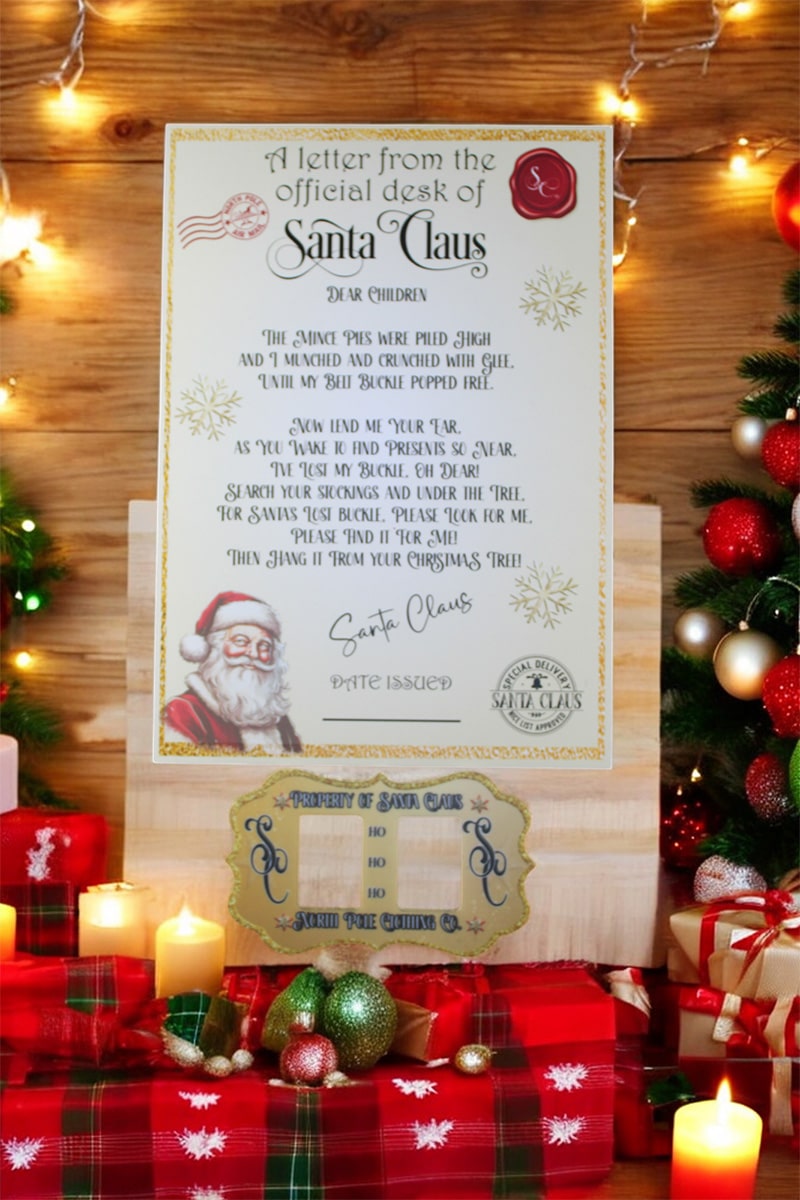 A letter from the
official desk of
Santa Claus
NORTH POLE
AIR MAIL
SC
DEAR CHILDREN
THE MINCE PIES WERE PILED HIGH
AND I MUNCHED AND CRUNCHED WITH GLEE,
UNTIL MY BELT BUCKLE POPPED FREE.
NOW LEND ME YOUR EAR,
AS YOU WAKE TO FIND PRESENTS SO NEAR,
I'VE LOST MY BUCKLE, OH DEAR!
SEARCH YOUR STOCKINGS AND UNDER THE TREE,
FOR SANTA'S LOST BUCKLE, PLEASE LOOK FOR ME,
PLEASE FIND IT FOR ME!
THEN HANG IT FROM YOUR CHRISTMAS TREE!
Santa Claus
DATE ISSUED
SPECIAL DELIVERY
SANTA CLAUS
NICE LIST APPROVED
PROPERTY OF SANTA CLAUS
SC
HO
HO
HO
SC
NORTH POLE CLOTHING CO.